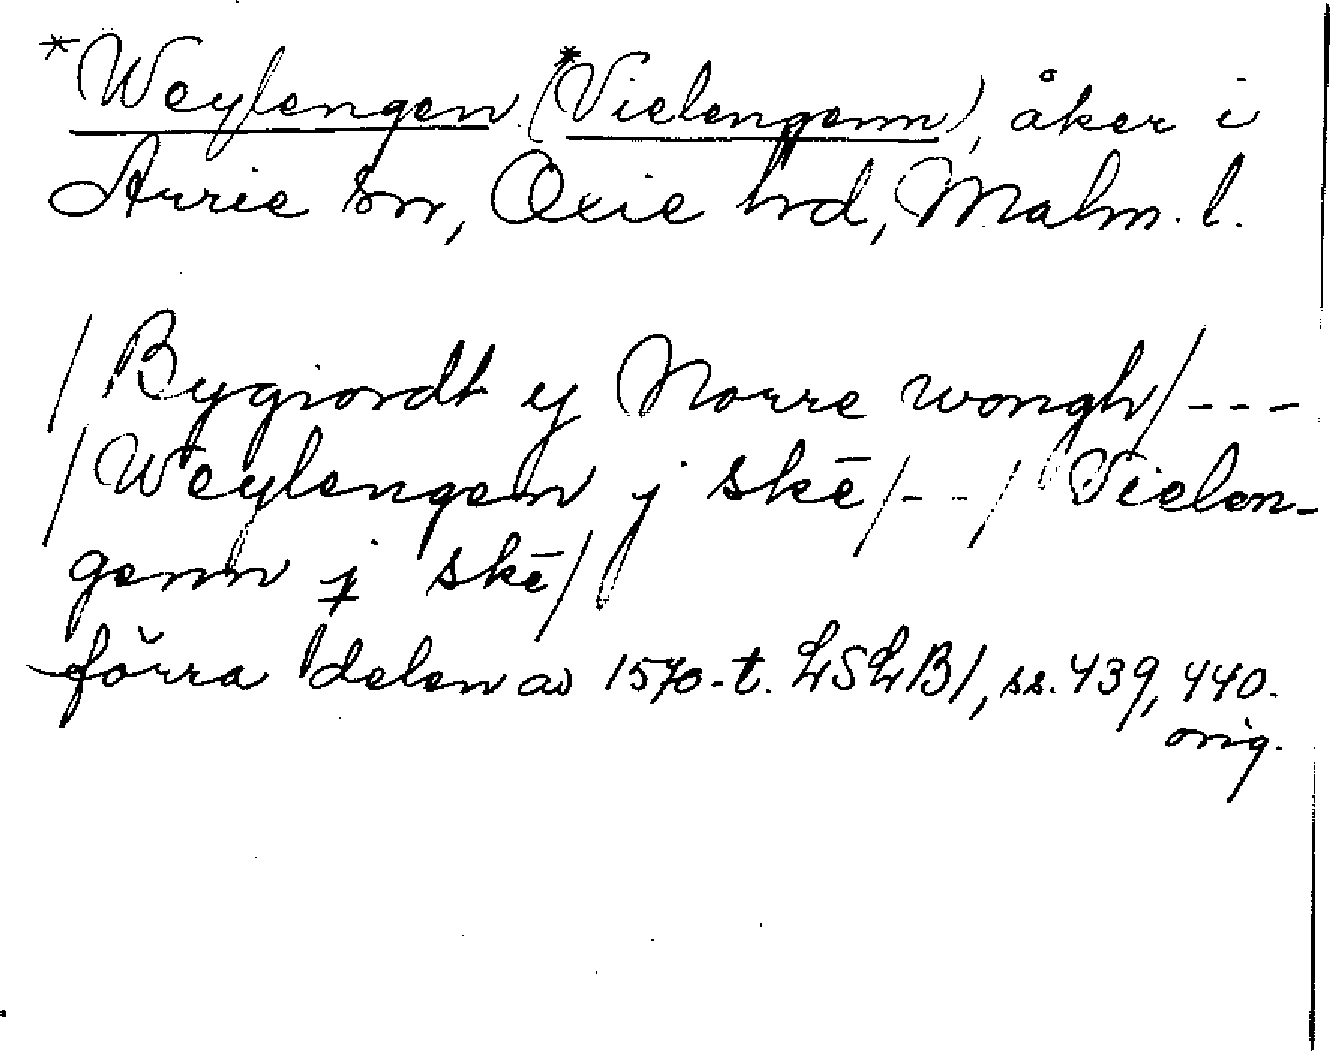 *Weylengen (*Vielengenn), åker i
Arrie sn, Oxie hd, Malm. l.
/Bygiordt y Norre wongh/---
/Weylengen j skē/--/Vielen-
genn j skē/
förra delen av 1570-t. LSLB1, ss. 439, 440.
orig.